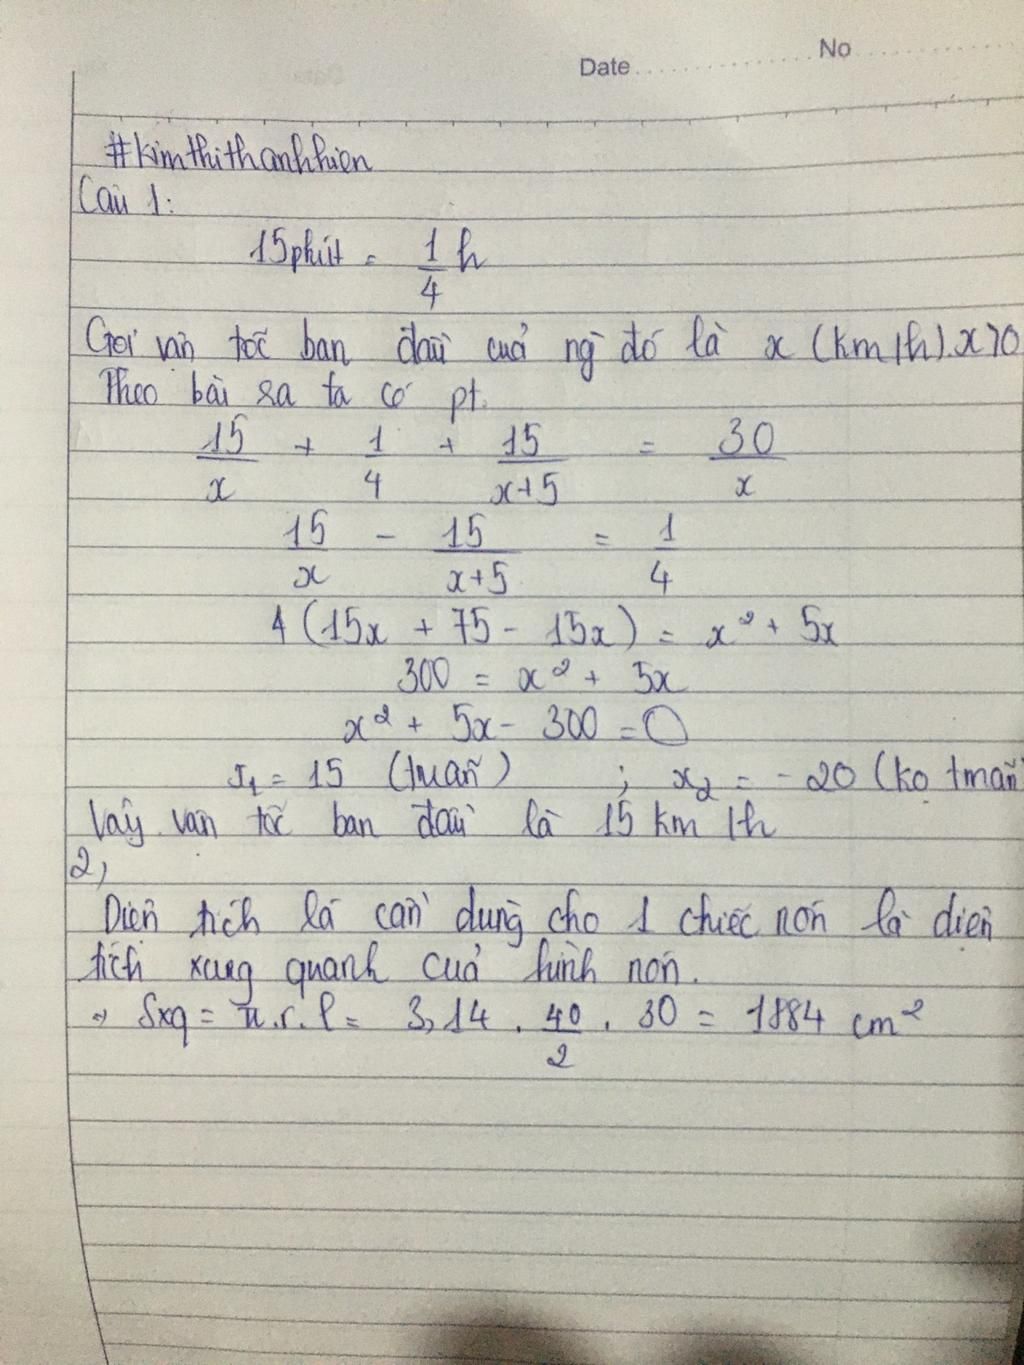 Date No
#kimthithanhhien
Câu 1:
15phút = 1/4 h
Gọi vận tốc ban đầu của ng đó là x (km/h). x>0
Theo bài ra ta có pt.
15/x + 1/4 + 15/(x+5) = 30/x
15/x - 15/(x+5) = 1/4
4 (15x + 75 - 15x) = x² + 5x
300 = x² + 5x
x² + 5x - 300 = 0
x₁ = 15 (tmãn) ; x₂ = -20 (ko tmãn)
Vậy vận tốc ban đầu là 15 km/h
2,
Diện tích lá cần dùng cho 1 chiếc nón là diện
tích xung quanh của hình nón.
⇒ Sxq = π.r.l = 3,14 . 40/2 . 30 = 1884 cm²